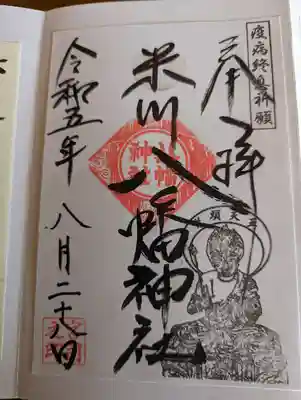 疫病終息祈願
奉拝
牛頭天王
米川八幡神社
八幡神社
令和五年 八月二十八日